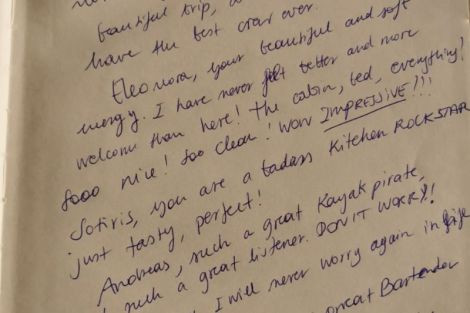 beautiful trip,
have the best crew ever.
Eleonora, your beautiful and soft
energy. I have never felt better and more
welcome than here! The cabin, bed, everything!
Sooo nice! Soo clean! WOW IMPRESSIVE!!!
Sotiris, you are a badass Kitchen ROCKSTAR
just tasty, perfect!
Andreas, such a great Kayak pirate,
such a great listener. DON'T WORRY!!
I will never worry again in life
great Bartender